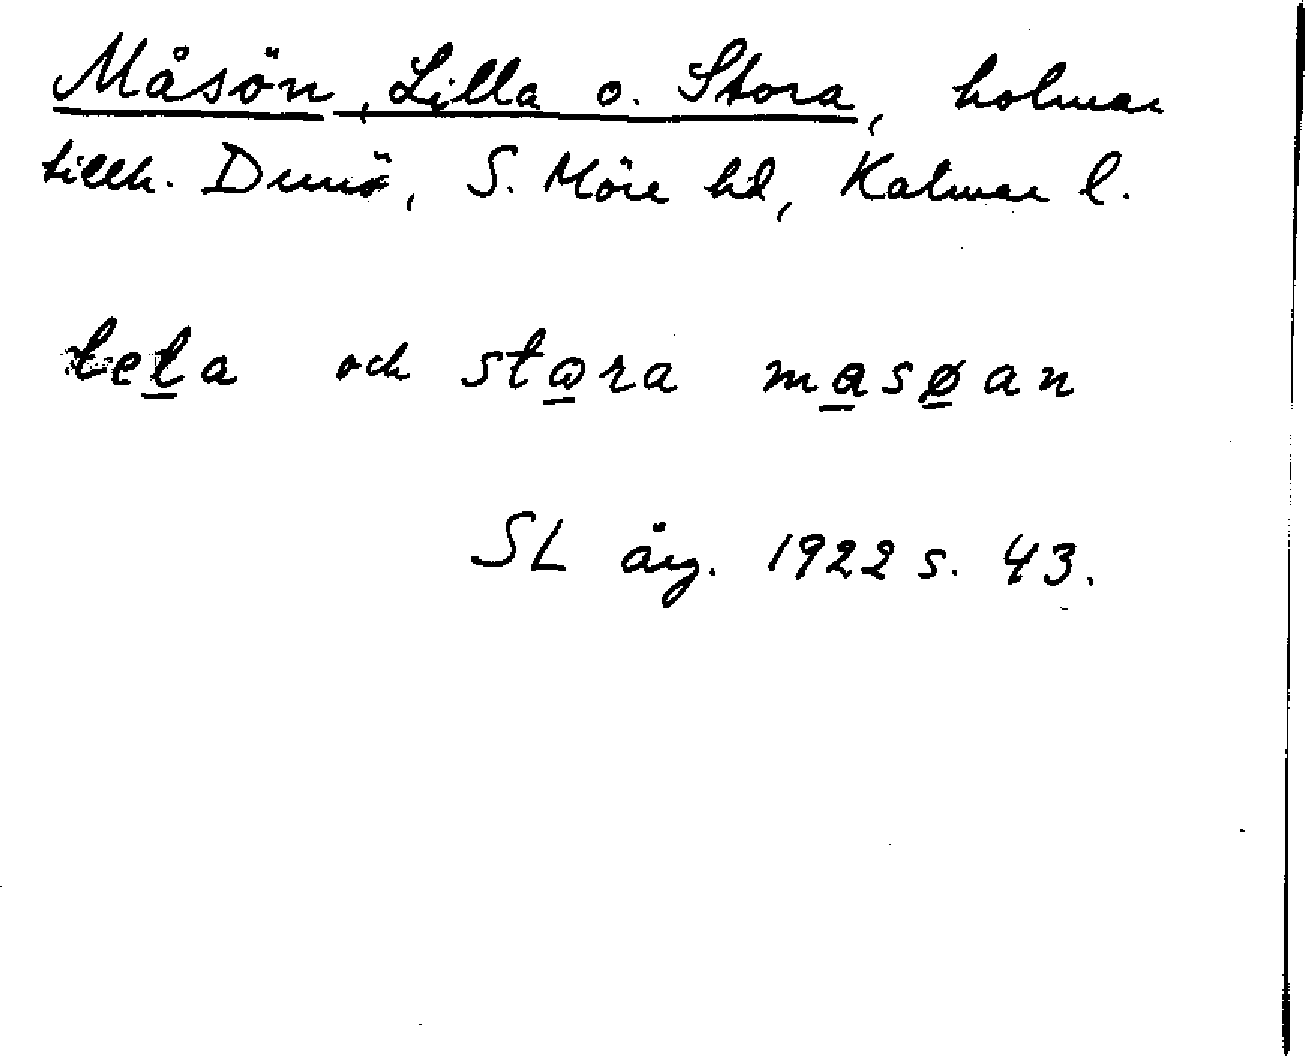 Måsön, Lilla o. Stora, holmar
tillh. Dunö, S. Möre hd, Kalmar l.
leta och stora masøan
SL årg. 1922 s. 43.